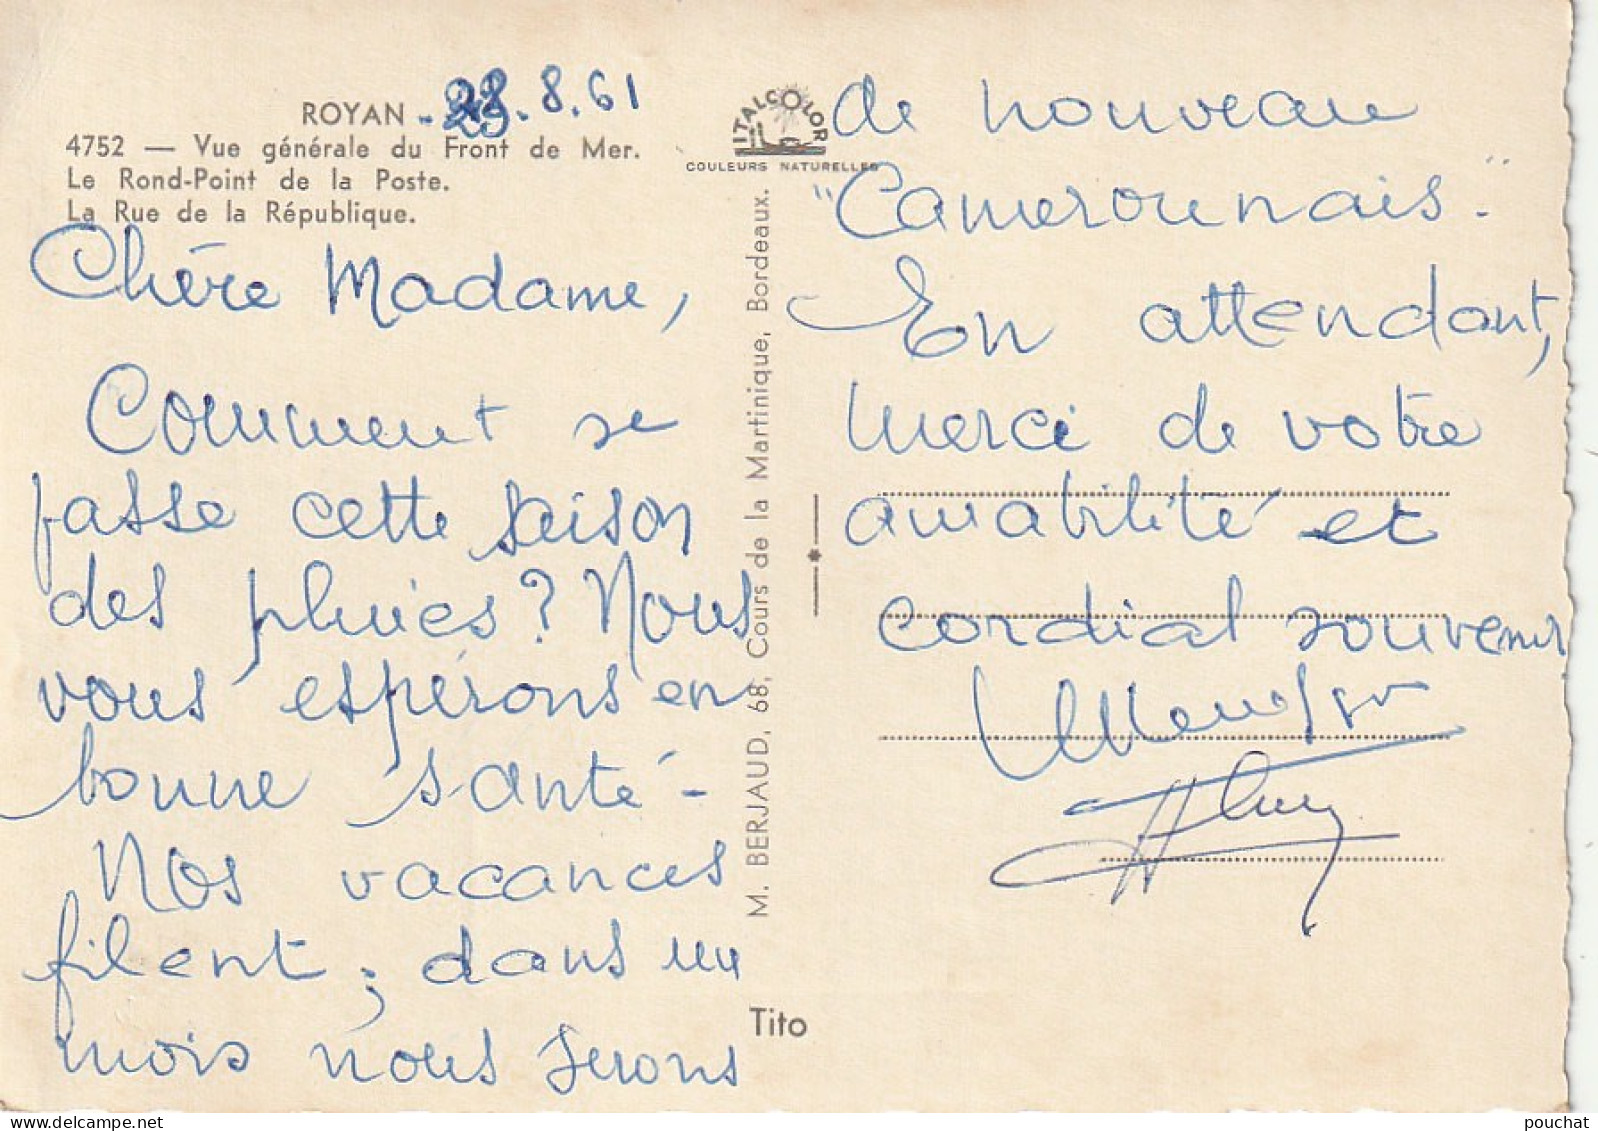 ROYAN - 28.8.61
4752 — Vue générale du Front de Mer.
Le Rond-Point de la Poste.
La Rue de la République.
Chère Madame,
Comment se
passe cette saison
des pluies? Nous
vous espérons en
bonne santé -
Nos vacances
filent; dans un
mois nous serons
ITALCOLOR
COULEURS NATURELLES
M. BERJAUD, 68, Cours de la Martinique, Bordeaux.
Tito
de nouveau
"Camerounais".
En attendant,
merci de votre
amabilité et
cordial souvenir
pouchat